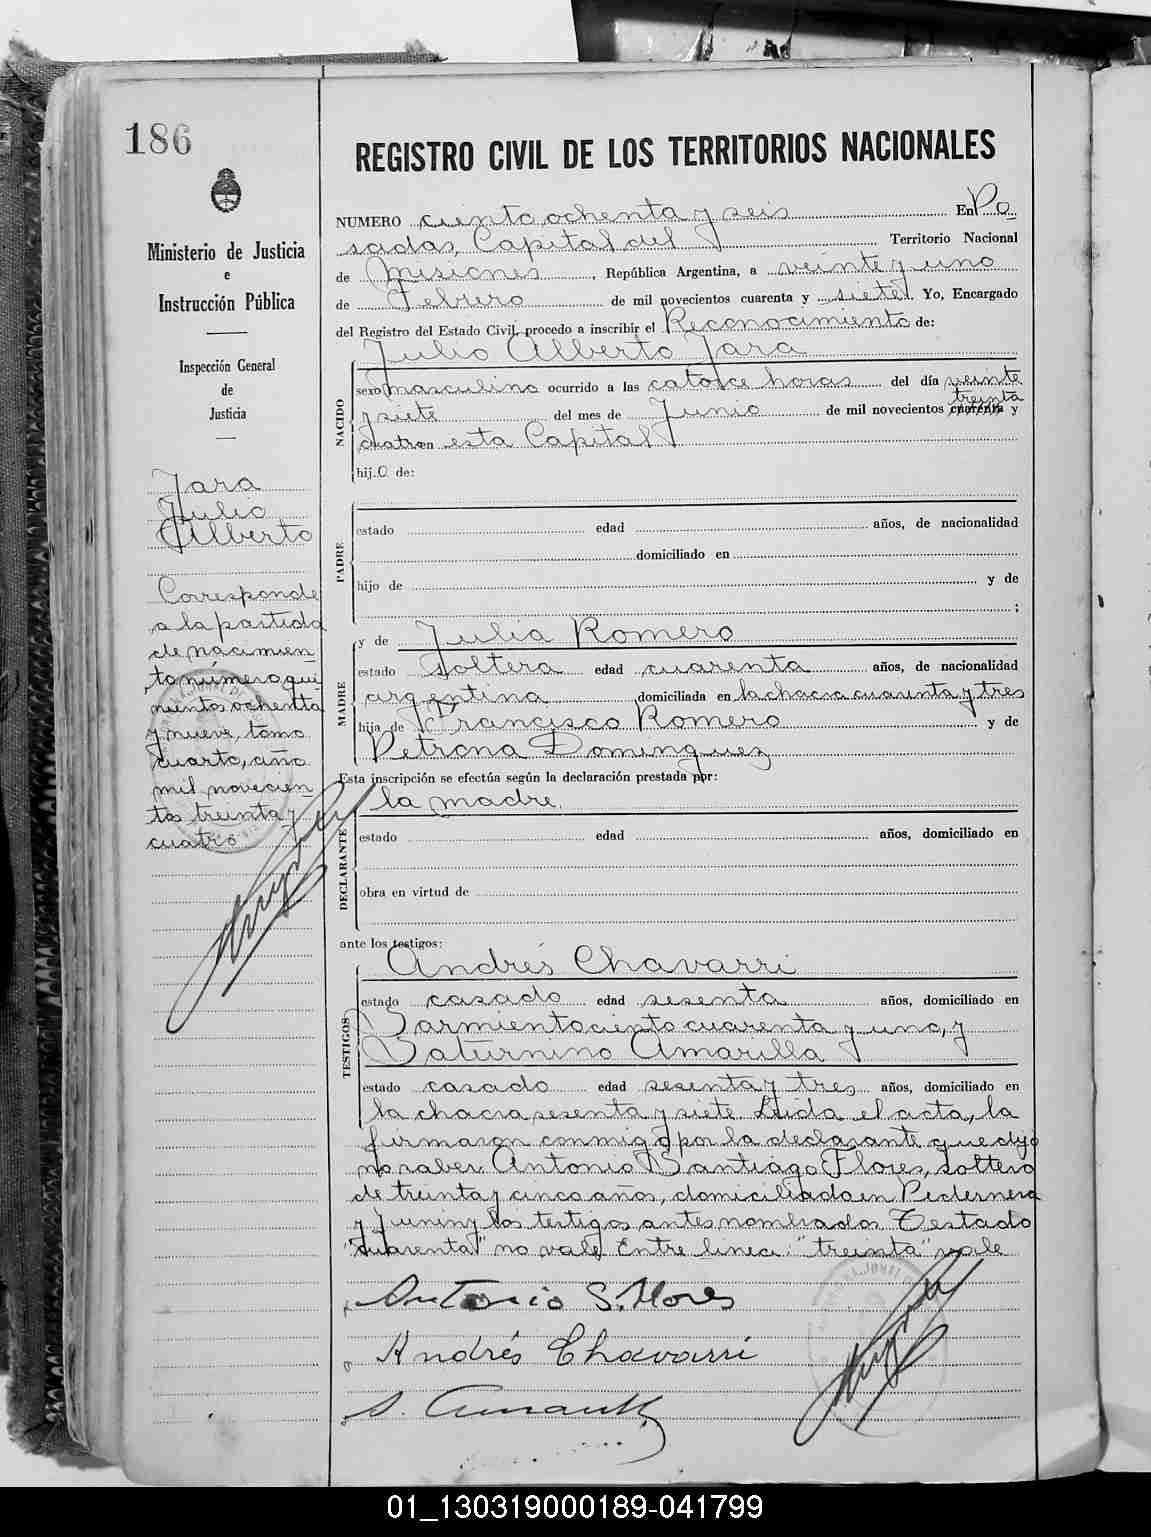 186
Ministerio de Justicia
e
Instrucción Pública
Inspección General
de
Justicia
Jara
Julio
Alberto
Corresponde
a la partida
de nacimien_
to número qui_
nientos ochenta
y nueve, tomo
cuarto, año
mil novecien_
tos treinta y
cuatro
REGISTRO CIVIL DE LOS TERRITORIOS NACIONALES
NUMERO ciento ochenta y seis En Po
sadas, Capital del Territorio Nacional
de Misiones, República Argentina, a veinte y uno
de Febrero de mil novecientos cuarenta y siete Yo, Encargado
del Registro del Estado Civil, procedo a inscribir el Reconocimiento de:
Julio Alberto Jara
NACIDO
sexo masculino ocurrido a las catorce horas del día veinte
treinta
y siete del mes de Junio de mil novecientos cuarenta y
cuatro en esta Capital
hij.o de:
PADRE
estado edad años, de nacionalidad
domiciliado en
hijo de y de
;
MADRE
y de Julia Romero
estado Soltera edad cuarenta años, de nacionalidad
argentina domiciliada en la chacra cuarenta y tres
hija de Francisco Romero y de
Petrona Dominguez
Esta inscripción se efectúa según la declaración prestada por:
la madre.
DECLARANTE
estado edad años, domiciliado en
obra en virtud de
ante los testigos:
TESTIGOS
Andrés Chavarri
estado casado edad sesenta años, domiciliado en
Sarmiento ciento cuarenta y uno, y
Saturnino Amarilla
estado casado edad sesenta y tres años, domiciliado en
la chacra sesenta y siete Leida el acta, la
firmaron conmigo por la declarante que dijo
no saber Antonio Santiago Flores, soltero
de treinta y cinco años, domiciliado en Pedernera
y Junin y los testigos antes nombrados Testado
"cuarenta" no vale Entre linea: "treinta" vale
Antonio S. Flores
Andrés Chavarri
S. Amarilla
01_130319000189-041799